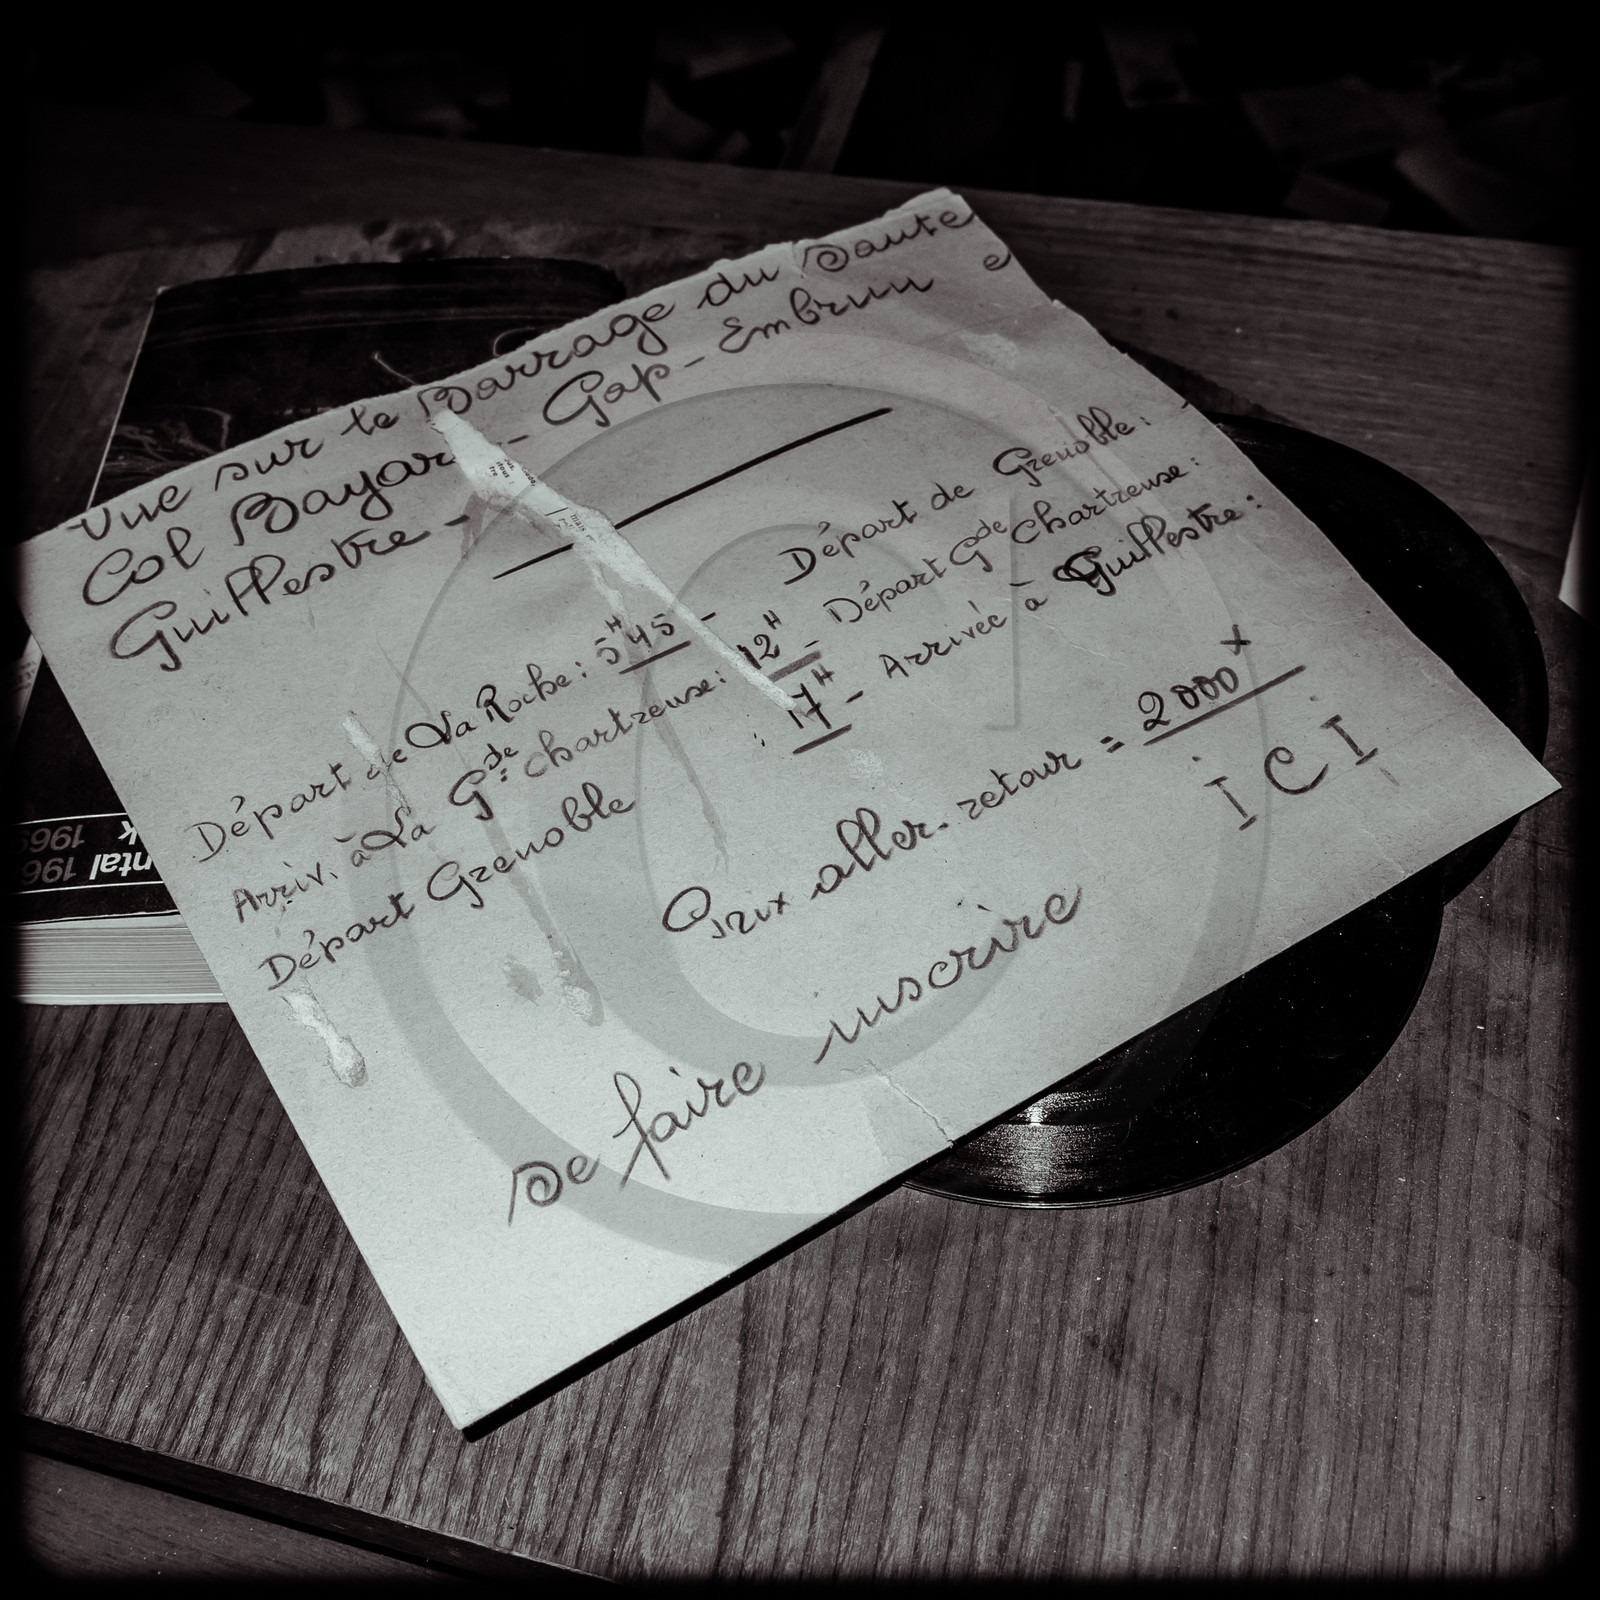 Vue sur le Barrage du Saute
Col Bayar - Gap - Embrun e
Guillestre -
Départ de La Roche : 5H45 - Départ de Grenoble :
Arriv. à La Gde Chartreuse : 12H - Départ Gde Chartreuse :
Départ Grenoble : 17H - Arrivée à Guillestre :
Prix aller-retour = 2000x
Se faire inscrire ICI
ntal 196
k 196
mais